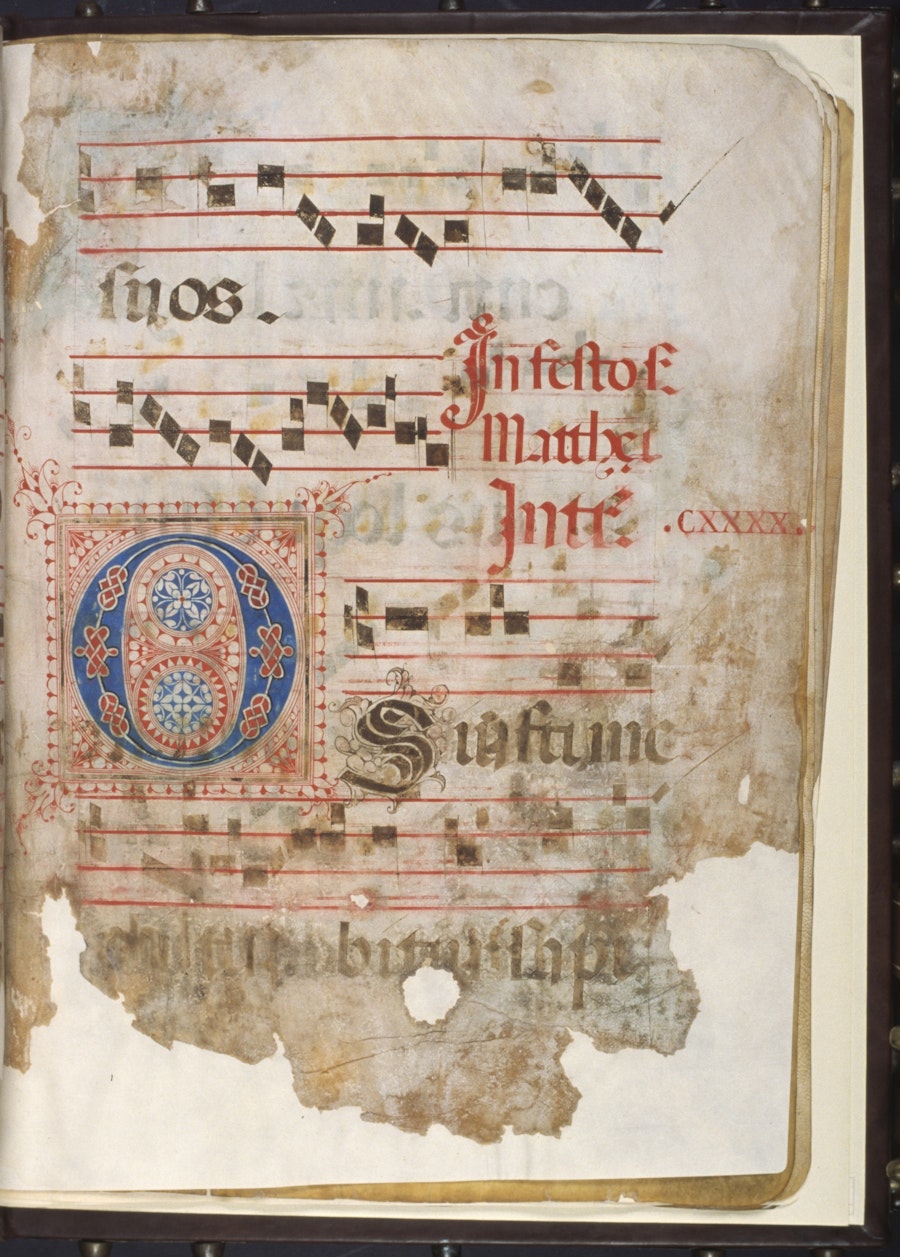 suos.
In festo S.
Matthei
Intr̃
.CXXXX.
OS iusti me
ditabitur sapi